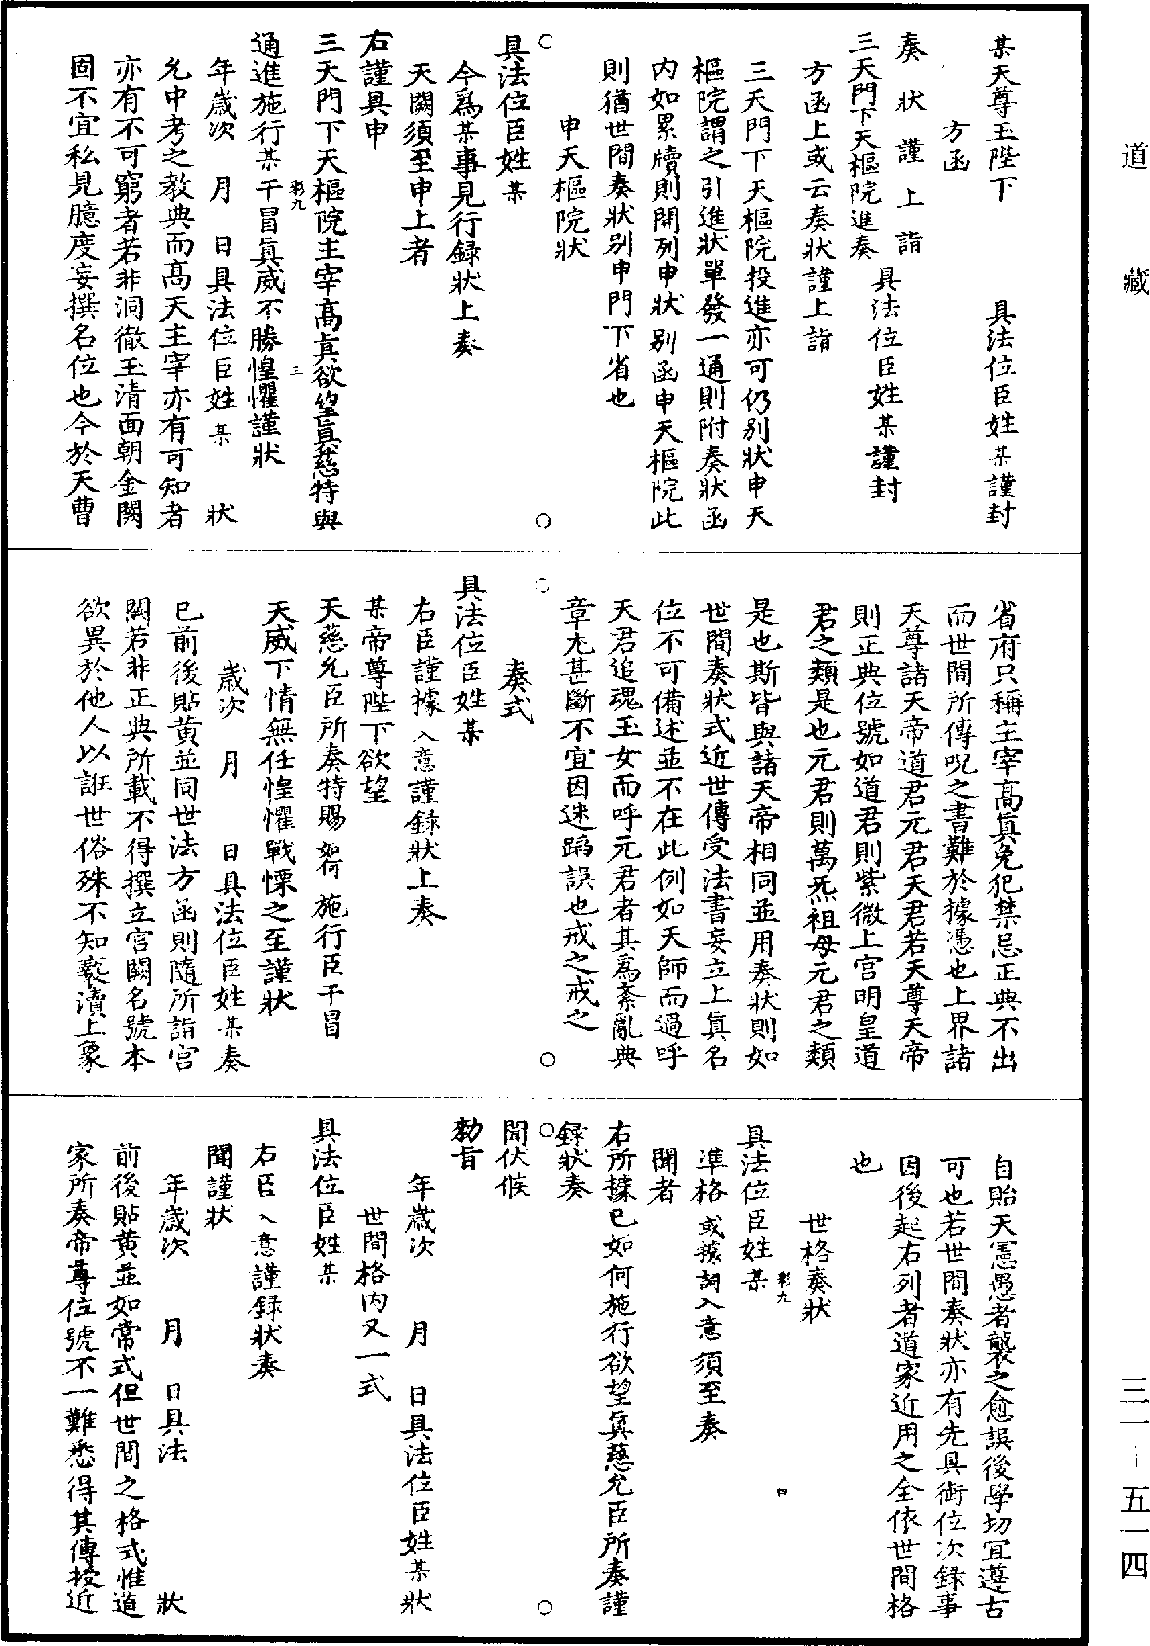 道藏
三一—五一四
某天尊玉陛下　　具法位臣姓某謹封
方函
奏狀謹上詣　具法位臣姓某謹封
三天門下天樞院進奏
方函上或云奏狀謹上詣
三天門下天樞院投進亦可仍別狀申天
樞院謂之引進狀單發一通則附奏狀函
內如累牘則開列申狀別函申天樞院此
則猶世間奏狀別申門下省也
申天樞院狀
具法位臣姓某
今爲某事見行録狀上奏
天闕須至申上者
右謹具申
三天門下天樞院主宰高眞欲望眞慈特與
彩九　三
通進施行某干冒眞威不勝惶懼謹狀
年歲次　月　日具法位臣姓某　狀
允中考之教典而高天主宰亦有可知者
亦有不可窮者若非洞徹玉清面朝金闕
固不宜私見臆度妄撰名位也今於天曹
省府只稱主宰高眞免犯禁忌正典不出
而世間所傳呪之書難於據憑也上界諸
天尊諸天帝道君元君天君若天尊天帝
則正典位號如道君則紫微上宮明皇道
君之類是也元君則萬炁祖母元君之類
是也斯皆與諸天帝相同並用奏狀則如
世間奏狀式近世傳受法書妄立上眞名
位不可備述並不在此例如天師而過呼
天君追魂玉女而呼元君者其爲紊亂典
章尤甚斷不宜因迷蹈誤也戒之戒之
奏式
具法位臣姓某
右臣謹據入意謹録狀上奏
某帝尊陛下欲望
天慈允臣所奏特賜如何施行臣干冒
天威下情無任惶懼戰慄之至謹狀
歲次　月　日具法位臣姓某奏
已前後貼黃並同世法方函則隨所詣宮
闕若非正典所載不得撰立宮闕名號本
欲異於他人以誑世俗殊不知褻瀆上眾
自貽天憲愚者襲之愈誤後學切宜遵古
可也若世間奏狀亦有先具銜位次録事
因後起右列者道家近用之全依世間格
也
世格奏狀
彩九　四
具法位臣姓某
準格或據詞入意須至奏
聞者
右所據已如何施行欲望眞慈允臣所奏謹
録狀奏
聞伏候
勑旨
年歲次　月　日具法位臣姓某狀
世間格內又一式
具法位臣姓某
右臣入意謹録狀奏
聞謹狀
年歲次　月　日具法　狀
前後貼黃並如常式但世間之格式惟道
家所奏帝尊位號不一難悉得其傳授近